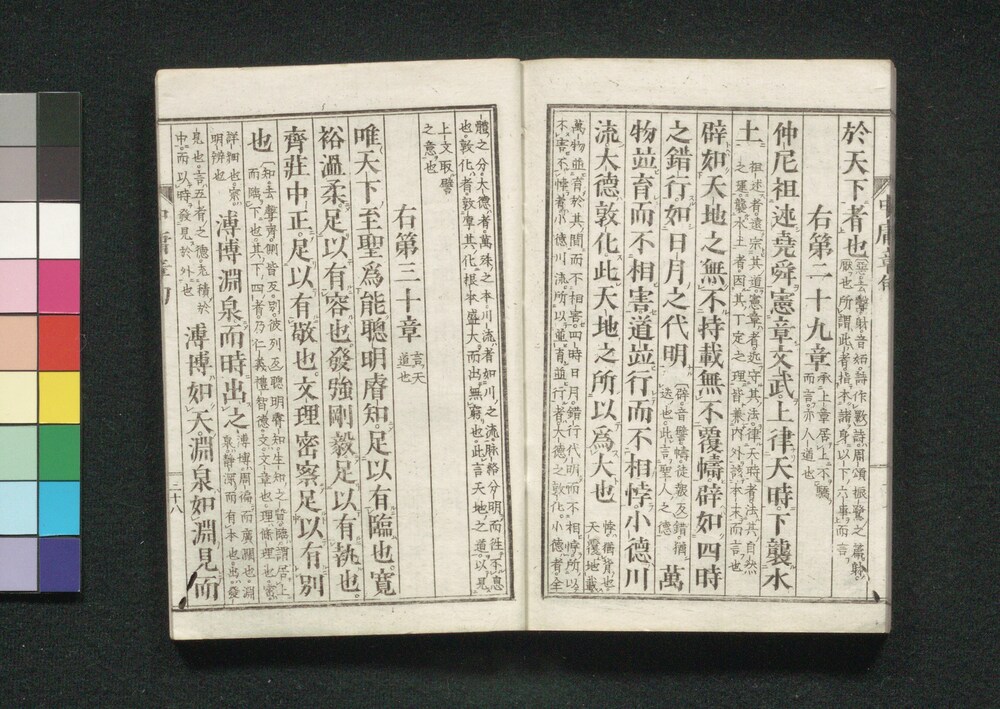 於天下者也
惡去聲射音妬詩作斁詩周頌振鷺之篇射
厭也所謂此者指本諸身以下六事而言
右第二十九章
承上章居上不驕
而言亦人道也
仲尼祖述堯舜憲章文武上律天時下襲水
土
祖述者遠宗其道憲章者近守其法律天時者法其自然
之運襲水土者因其一定之理皆兼內外該本末而言也
辟如天地之無不持載無不覆幬辟如四時
之錯行如日月之代明
辟音譬幬徒報反錯猶
迭也此言聖人之德
萬
物竝育而不相害道竝行而不相悖小德川
流大德敦化此天地之所以爲大也
悖猶背也
天覆地載
萬物並育於其間而不相害四時日月錯行代明而不相悖所以
不害不悖者小德川流所以並育並行者大德之敦化小德者全
體之分大德者萬殊之本川流者如川之流脉絡分明而徃不息
也敦化者敦厚其化根本盛大而出無窮也此言天地之道以見
上文取譬
之意也
右第三十章
言天
道也
唯天下至聖爲能聰明睿知足以有臨也寬
裕溫柔足以有容也發強剛毅足以有執也
齊莊中正足以有敬也文理密察足以有別
也
知去聲齊側皆反別彼列反聰明睿知生知之質臨謂居上
而臨下也其下四者乃仁義禮智德文文章也理條理也密
詳細也察
明辨也
溥博淵泉而時出之
溥博周徧而廣濶也淵
泉靜深而有本也出發
見也言五者之德充積於
中而以時發見於外也
溥博如天淵泉如淵見而
中庸章句
二十八